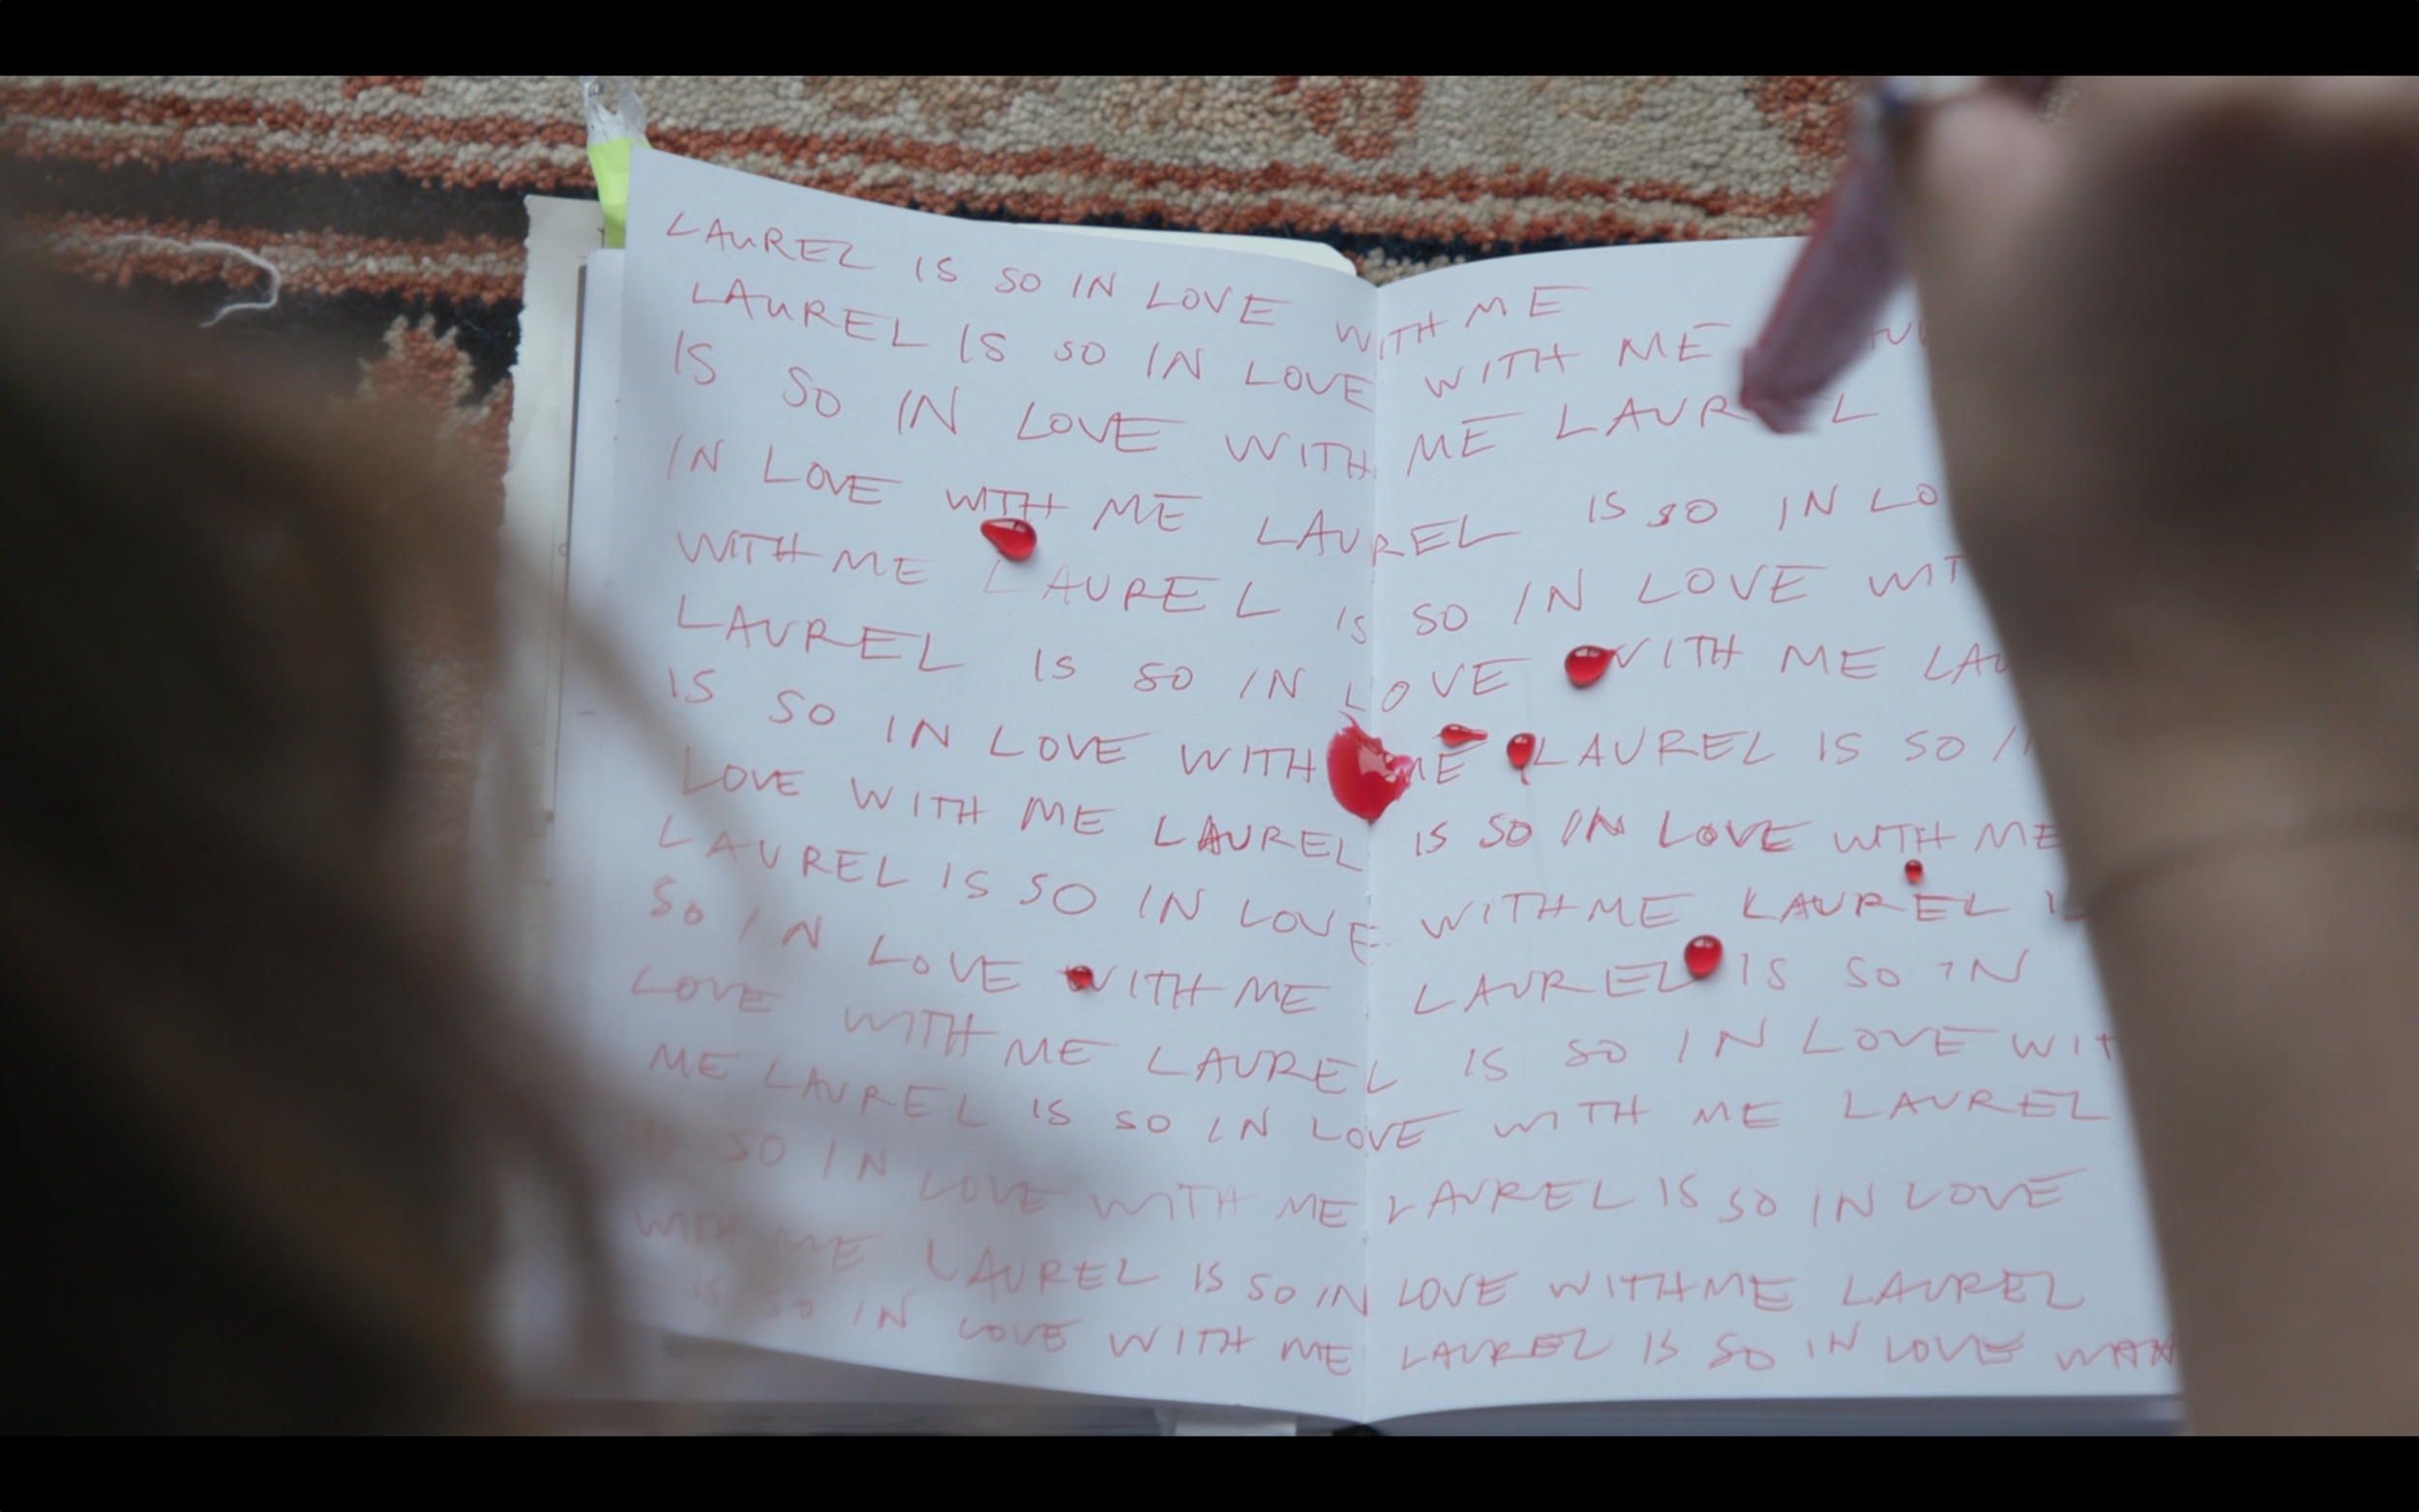 LAUREL IS SO IN LOVE WITH ME
LAUREL IS SO IN LOVE WITH ME
IS SO IN LOVE WITH ME LAUREL
IN LOVE WITH ME LAUREL IS SO IN LO
WITH ME LAUREL IS SO IN LOVE WIT
LAUREL IS SO IN LOVE WITH ME LAU
IS SO IN LOVE WITH ME LAUREL IS SO I
LOVE WITH ME LAUREL IS SO IN LOVE WITH ME
LAUREL IS SO IN LOVE WITH ME LAUREL I
SO IN LOVE WITH ME LAUREL IS SO IN
LOVE WITH ME LAUREL IS SO IN LOVE WIT
ME LAUREL IS SO IN LOVE WITH ME LAUREL
IS SO IN LOVE WITH ME LAUREL IS SO IN LOVE
WITH ME LAUREL IS SO IN LOVE WITH ME LAUREL
IS SO IN LOVE WITH ME LAUREL IS SO IN LOVE